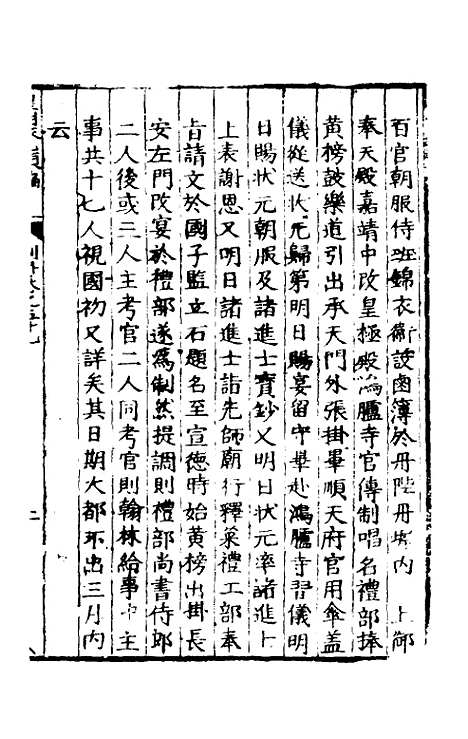 百官朝服侍班錦衣衛設鹵簿於丹陛丹墀内　上御
奉天殿嘉靖中改皇極殿鴻臚寺官傳制唱名禮部捧
黄榜鼓樂道引出承天門外張掛畢順天府官用傘盖
儀從送狀元歸第明日賜宴留中畢赴鴻臚寺習儀明
日賜狀元朝服及諸進士寶鈔又明日狀元率諸進士
上表謝恩又明日諸進士詣先師廟行釋菜禮工部奉
旨請文於國子監立石題名至宣德時始黄榜出掛長
安左門改宴於禮部遂爲制然提調則禮部尚書侍郎
二人後或三人主考官二人同考官則翰林給事中主
事共十七人視國初又詳矣其日期大都不出三月内
云